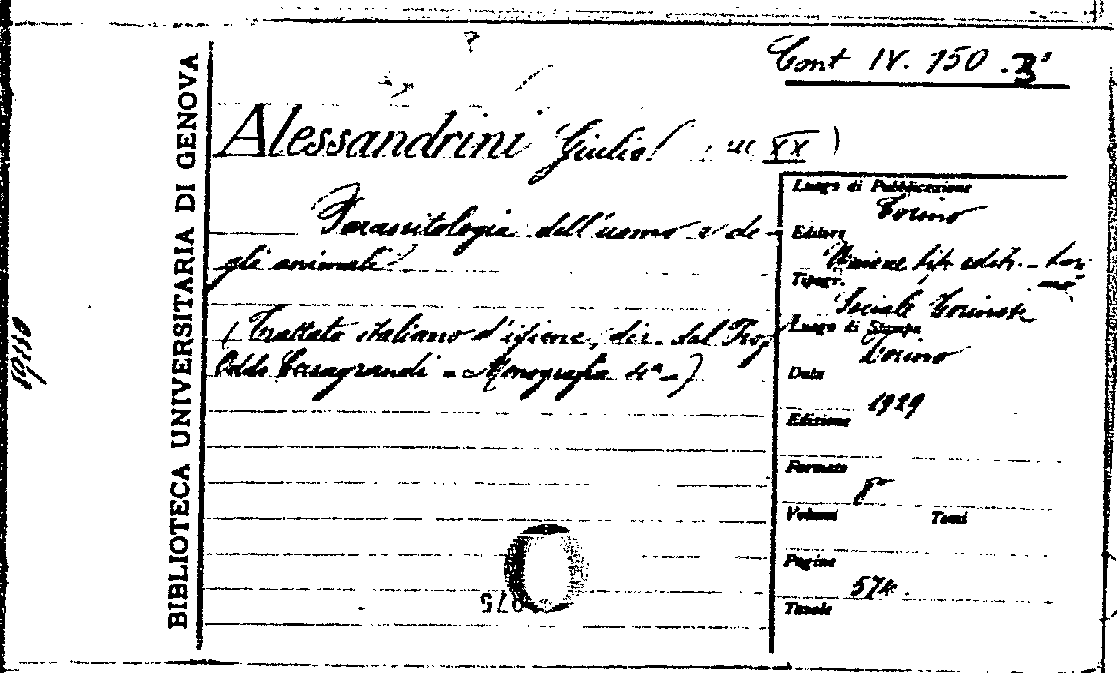 Cont IV. 150 . 3
Alessandrini Giulio (sec XX)
Parassitologia dell'uomo e de-
gli animali
(Trattato italiano d'igiene, dir. dal Prof
Oddo Casagrandi - Monografia 4ª -)
Luogo di Pubblicazione
Torino
Editore
Unione tip. editr. - tori
Tipogr.
Sociale Torinese
Luogo di Stampa
Torino
Data
1929
Edizione
Formato
8º
Volumi Tomi
Pagine
574.
Tavole
BIBLIOTECA UNIVERSITARIA DI GENOVA